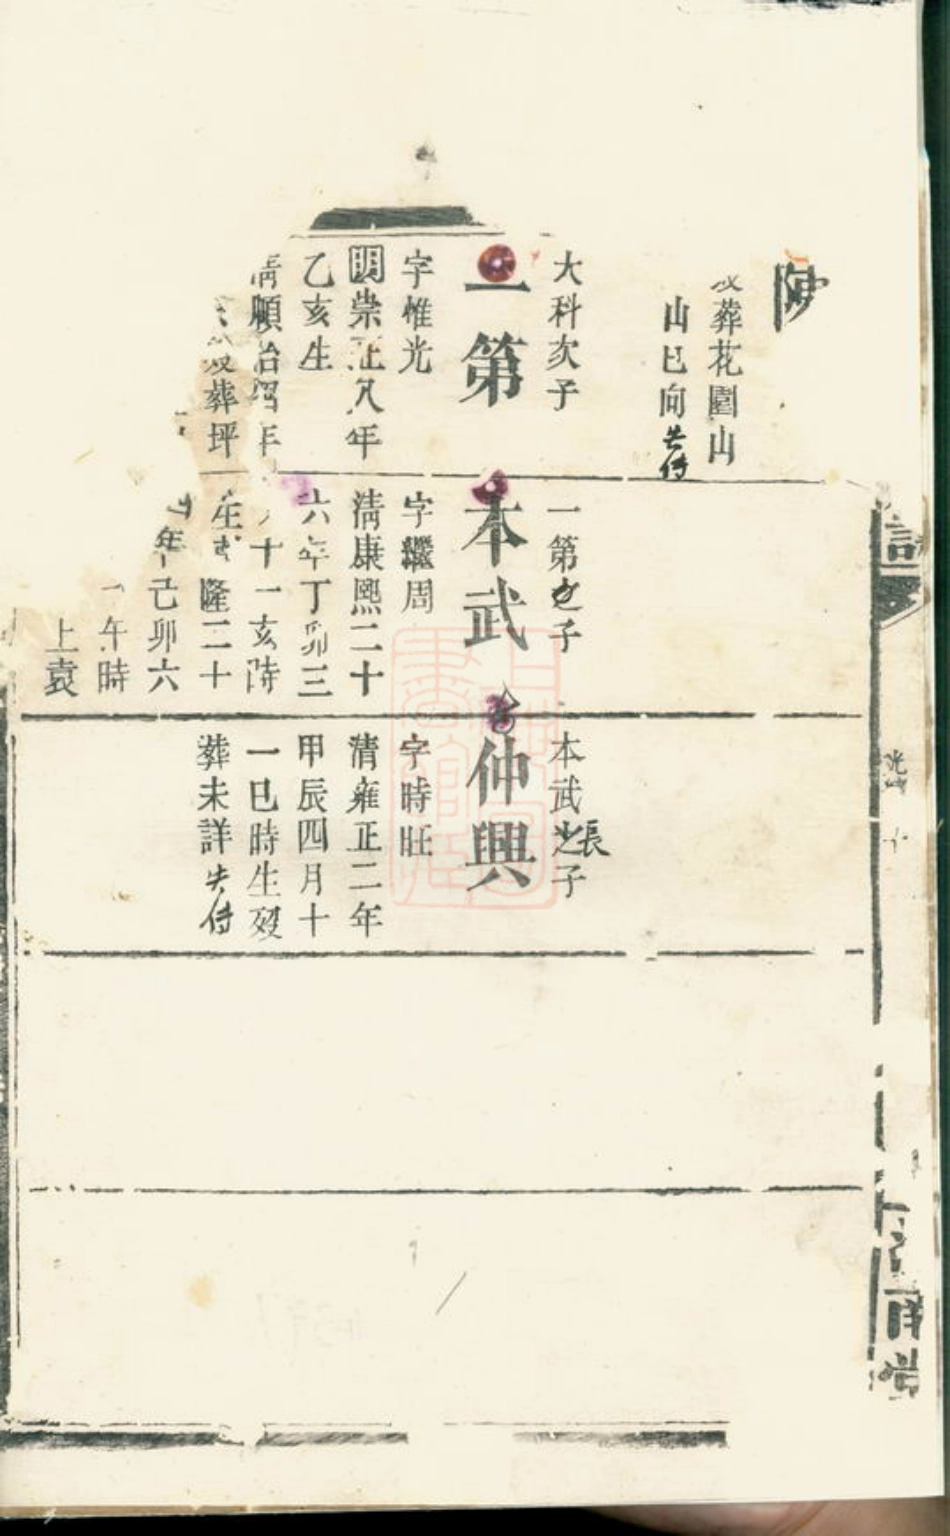 陳
葬花園山
山巳向失傳
大科次子
一第
字惟光
明崇正八年
乙亥生
清順治四年
歿葬坪
一第之子
本武
字繼周
清康熙二十
六年丁卯三
十一亥時
生
隆二十
年己卯六
午時
上袁
本武之長子
仲興
字時旺
清雍正二年
甲辰四月十
一巳時生歿
葬未詳失傳
上海圖書館藏